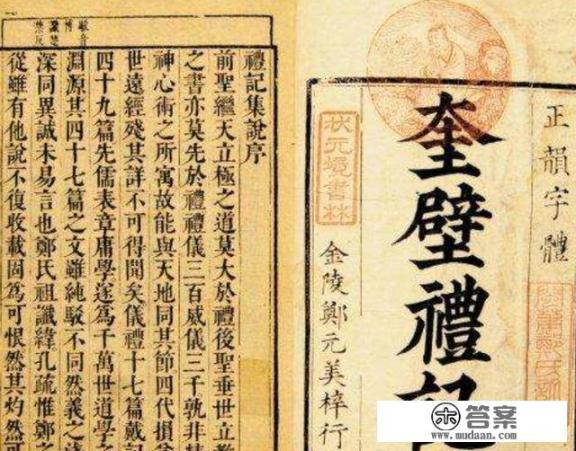 正韻字體
奎壁禮記
狀元境書林
金陵鄭元美梓行
禮記集說序
前聖繼天立極之道莫大於禮後聖垂世立教
之書亦莫先於禮禮儀三百威儀三千孰非
神心術之所寓故能與天地同其節四代損益
世遠經殘其詳不可得聞矣儀禮十七篇戴記
四十九篇先儒表章庸學遂為千萬世道學之
淵源其四十七篇之文雖純駁不同然義之淺
深同異誠未易言也鄭氏祖讖緯孔疏惟鄭之
從雖有他說不復收載固為可恨然其灼然可
讖楚
禁反
答案
www.mudaan.com